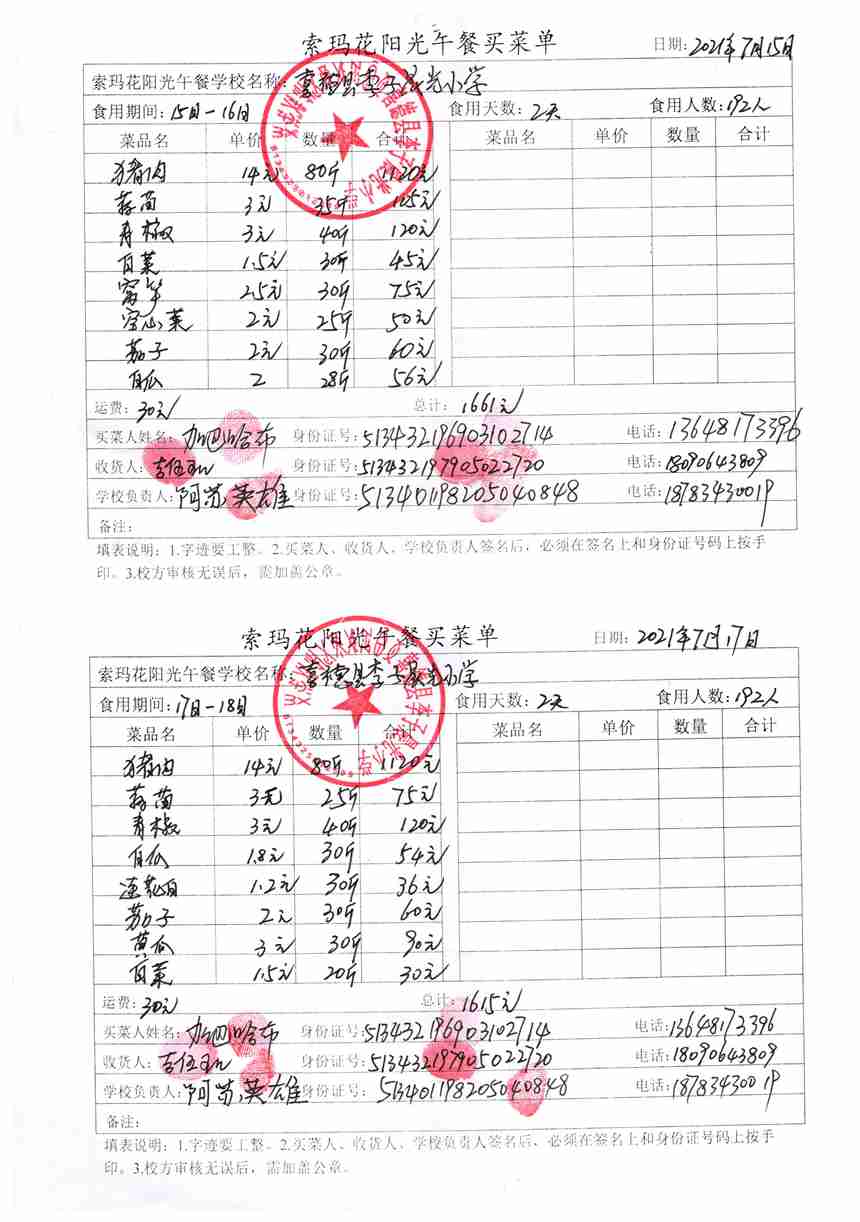 索玛花阳光午餐买菜单 日期:2021年7月15日
索玛花阳光午餐学校名称:喜德县李子晨光小学
食用期间:15日-16日 食用天数:2天 食用人数:192人
菜品名 单价 数量 合计 菜品名 单价 数量 合计
猪肉 14元 80斤 1120元
蒜苗 3元 35斤 105元
青椒 3元 40斤 120元
白菜 1.5元 30斤 45元
窝笋 2.5元 30斤 75元
空心菜 2元 25斤 50元
茄子 2元 30斤 60元
白瓜 2 28斤 56元
运费:30元 总计:1661元
买菜人姓名:加巴哈布 身份证号:513432196903102714 电话:13648173396
收货人:吉伍 身份证号:513432197905022720 电话:18090643809
学校负责人:阿苏英雄 身份证号:513401198205040848 电话:18783430019
备注:
填表说明:1.字迹要工整。2.买菜人、收货人、学校负责人签名后,必须在签名上和身份证号码上按手
印。3.校方审核无误后,需加盖公章。
索玛花阳光午餐买菜单 日期:2021年7月17日
索玛花阳光午餐学校名称:喜德县李子晨光小学
食用期间:17日-18日 食用天数:2天 食用人数:192人
菜品名 单价 数量 合计 菜品名 单价 数量 合计
猪肉 14元 80斤 1120元
蒜苗 3元 25斤 75元
青椒 3元 40斤 120元
白瓜 1.8元 30斤 54元
莲花白 1.2元 30斤 36元
茄子 2元 30斤 60元
黄瓜 3元 30斤 90元
白菜 1.5元 20斤 30元
运费:30元 总计:1615元
买菜人姓名:加巴哈布 身份证号:513432196903102714 电话:13648173396
收货人:吉伍 身份证号:513432197905022720 电话:18090643809
学校负责人:阿苏英雄 身份证号:513401198205040848 电话:18783430019
备注:
填表说明:1.字迹要工整。2.买菜人、收货人、学校负责人签名后,必须在签名上和身份证号码上按手
印。3.校方审核无误后,需加盖公章。